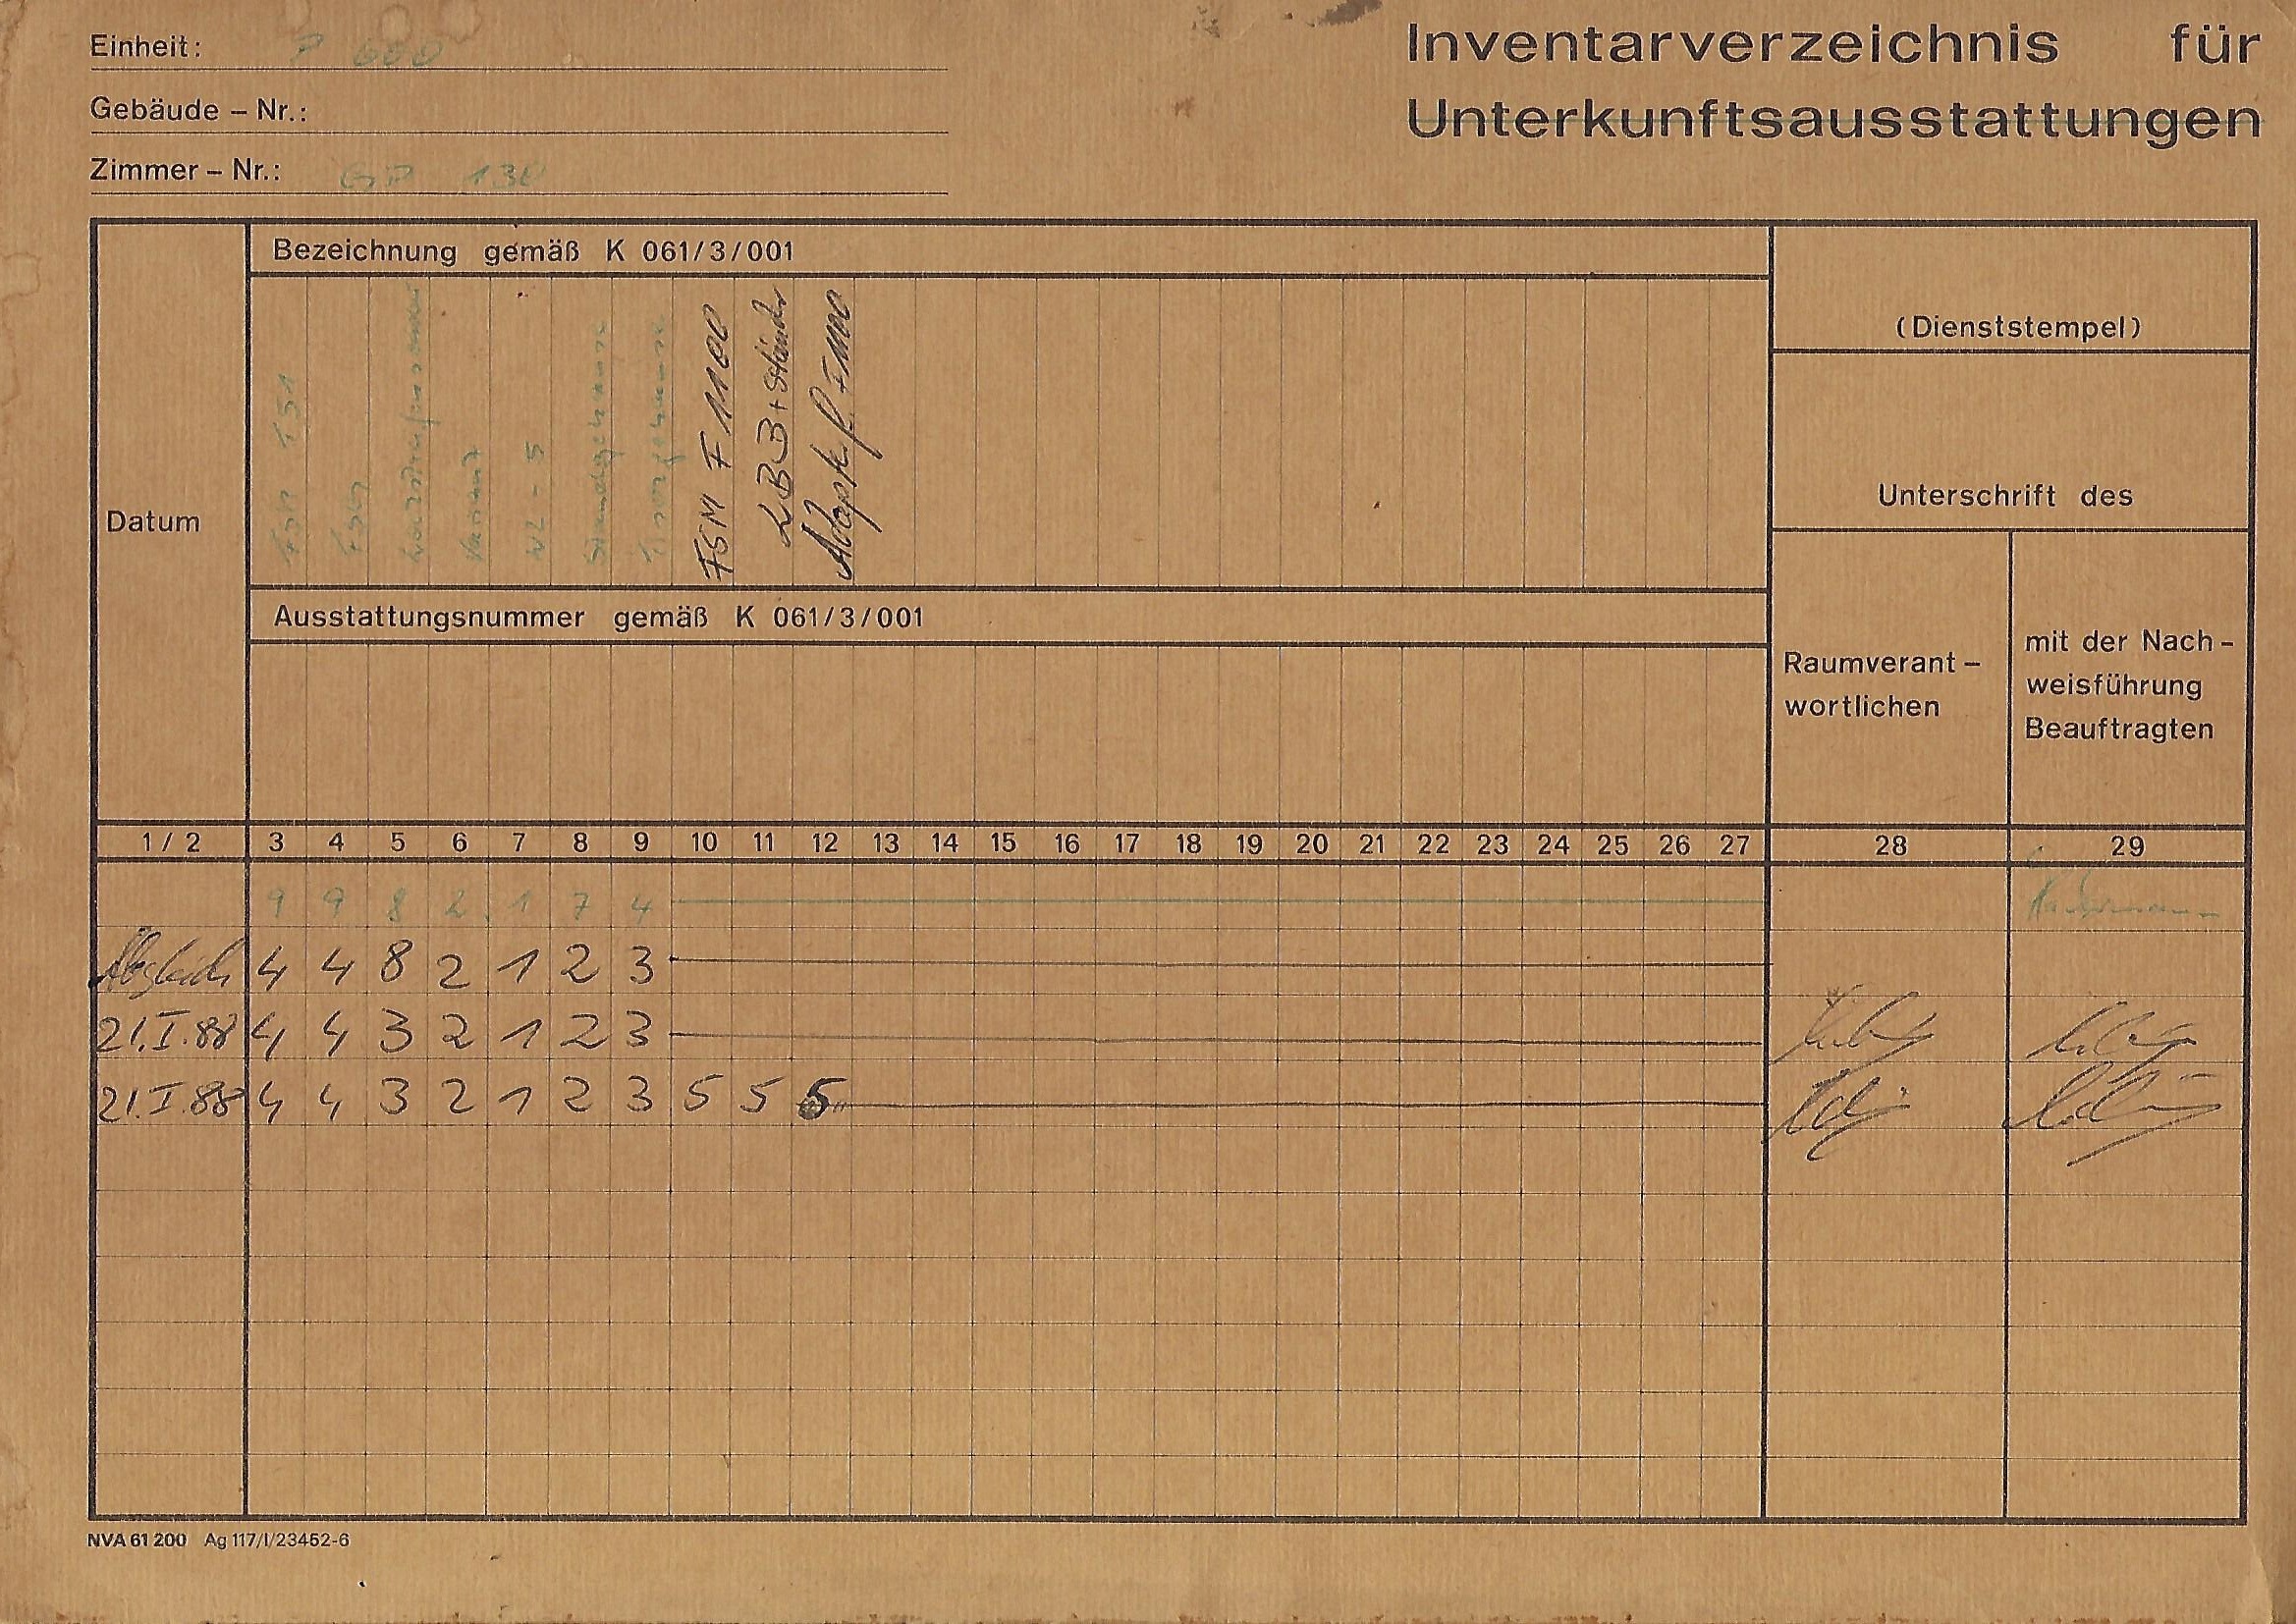 Einheit: P 600
Inventarverzeichnis für
Gebäude – Nr.:
Unterkunftsausstattungen
Zimmer – Nr.: GP 130
Bezeichnung gemäß K 061/3/001
(Dienststempel)
Unterschrift des
Datum
WL-5
FSM F1100
LBB + Ständer
Ausstattungsnummer gemäß K 061/3/001
Raumverant-
wortlichen
mit der Nach-
weisführung
Beauftragten
1/2 3 4 5 6 7 8 9 10 11 12 13 14 15 16 17 18 19 20 21 22 23 24 25 26 27 28 29
9 9 8 2 1 7 4
Abgleich 4 4 8 2 1 2 3
21.I.88 4 4 3 2 1 2 3
21.I.88 4 4 3 2 1 2 3 5 5 5
NVA 61 200 Ag 117/I/23452-6